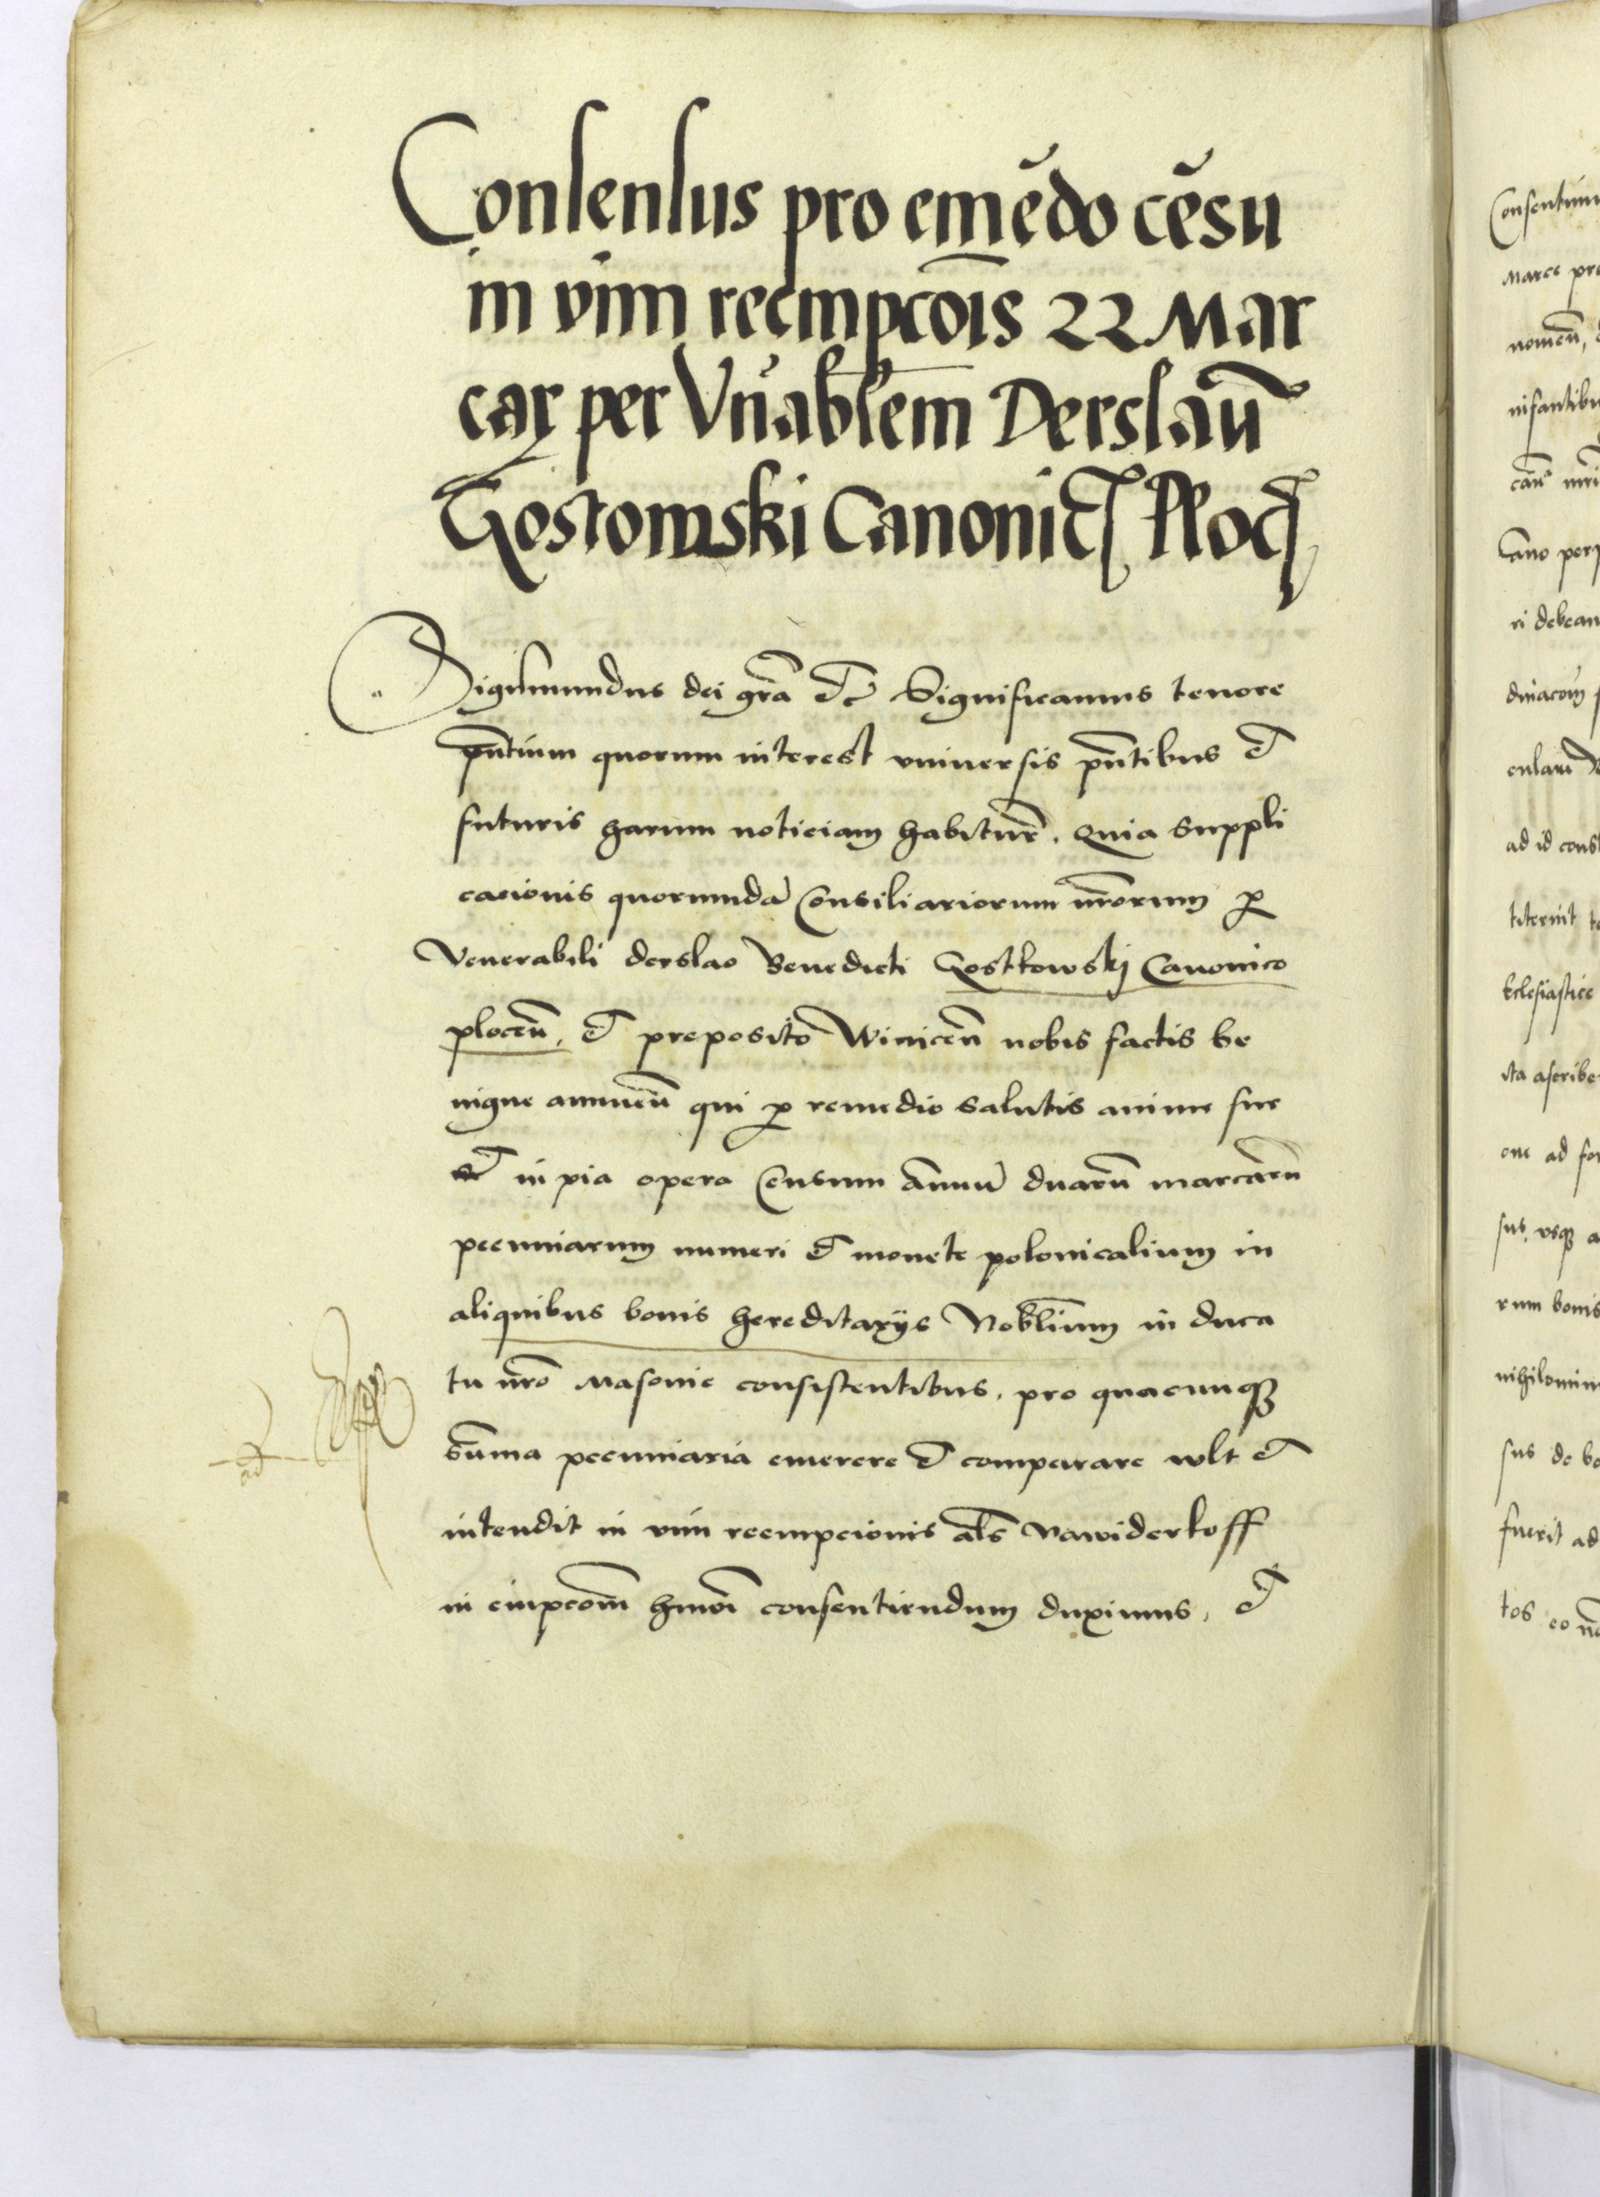 Consensus pro emẽdo cẽsu
in vim reempcõis 22 Mar
caꝝ per Vñabĩlem Derslaũ
Gostomski Canonicꝭ Plocꝭ
Sigismundus dei grã etc̃ Significamus tenore
pñtium quorum interest vniuersis pñtibus et
futuris harum noticiam habiturꝭ. Quia suppli
cacionis quorundã Consiliariorum nr̃orum ꝓ
Venerabili derslao Benedicti Gostkowskj Canonico
plocen̄, et preposito Winicen̄ nobis factis be
nigne annuen̄ qui ꝓ remedio salutis anime sue
et in pia opera Censum Annuũ duarũ marcarũ
pecuniarum numeri et monete polonicalium in
aliquibus bonis hereditarijs Nobl̃ium in duca
tu nr̃o Masouie consistentibus, pro quacunqꝫ
sũma pecuniaria emerere et comparare wlt et
intendit in vim reempcionis al̃s Nawiderkoff
in empcom̃ hm̃oi consentiendum duximus, et
ad
Consentim
Marce pr
nomeñ,
nifantibu
cañ
Cano perp
ri debean
ad id cons
titerint t
Eclesiastice
ita ascribe
one ad fo
sus, vsqꝫ a
rum bonis
nihilomin
sus de bo
fuerit ad
tos eo